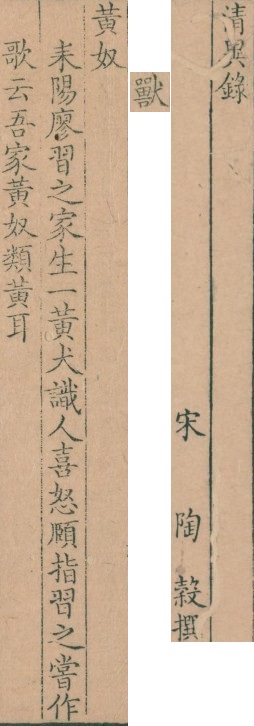 清異錄
宋 陶 穀撰
獸
黃奴
耒陽廖習之家生一黃犬識人喜怒願指習之嘗作
歌云吾家黃奴類黃耳